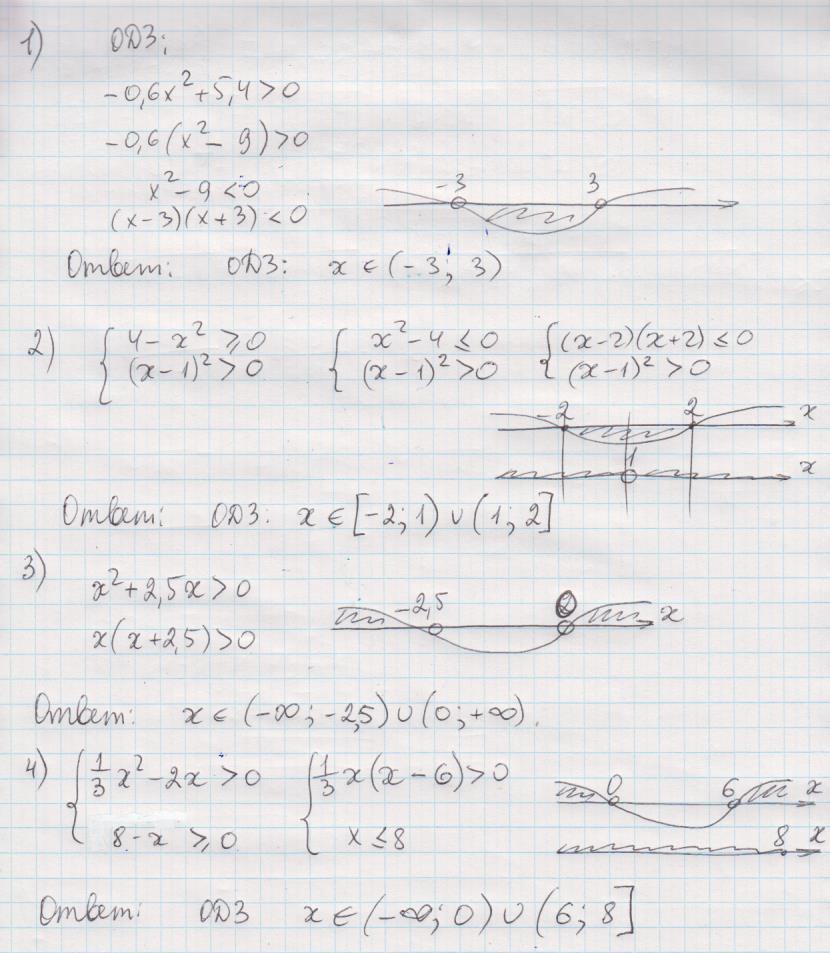 1) ОДЗ:
-0,6x² + 5,4 > 0
-0,6(x² - 9) > 0
x² - 9 < 0
(x-3)(x+3) < 0
-3 3
Ответ: ОДЗ: x ∈ (-3; 3)
2) { 4 - x² ≥ 0 { x² - 4 ≤ 0 { (x-2)(x+2) ≤ 0
(x-1)² > 0 (x-1)² > 0 (x-1)² > 0
-2 2 x
1 x
Ответ: ОДЗ: x ∈ [-2; 1) ∪ (1; 2]
3)
x² + 2,5x > 0
x(x+2,5) > 0
-2,5 0 x
Ответ: x ∈ (-∞; -2,5) ∪ (0; +∞).
4) { 1/3 x² - 2x > 0 { 1/3 x(x - 6) > 0
8 - x ≥ 0 x ≤ 8
0 6 x
8 x
Ответ: ОДЗ x ∈ (-∞; 0) ∪ (6; 8]